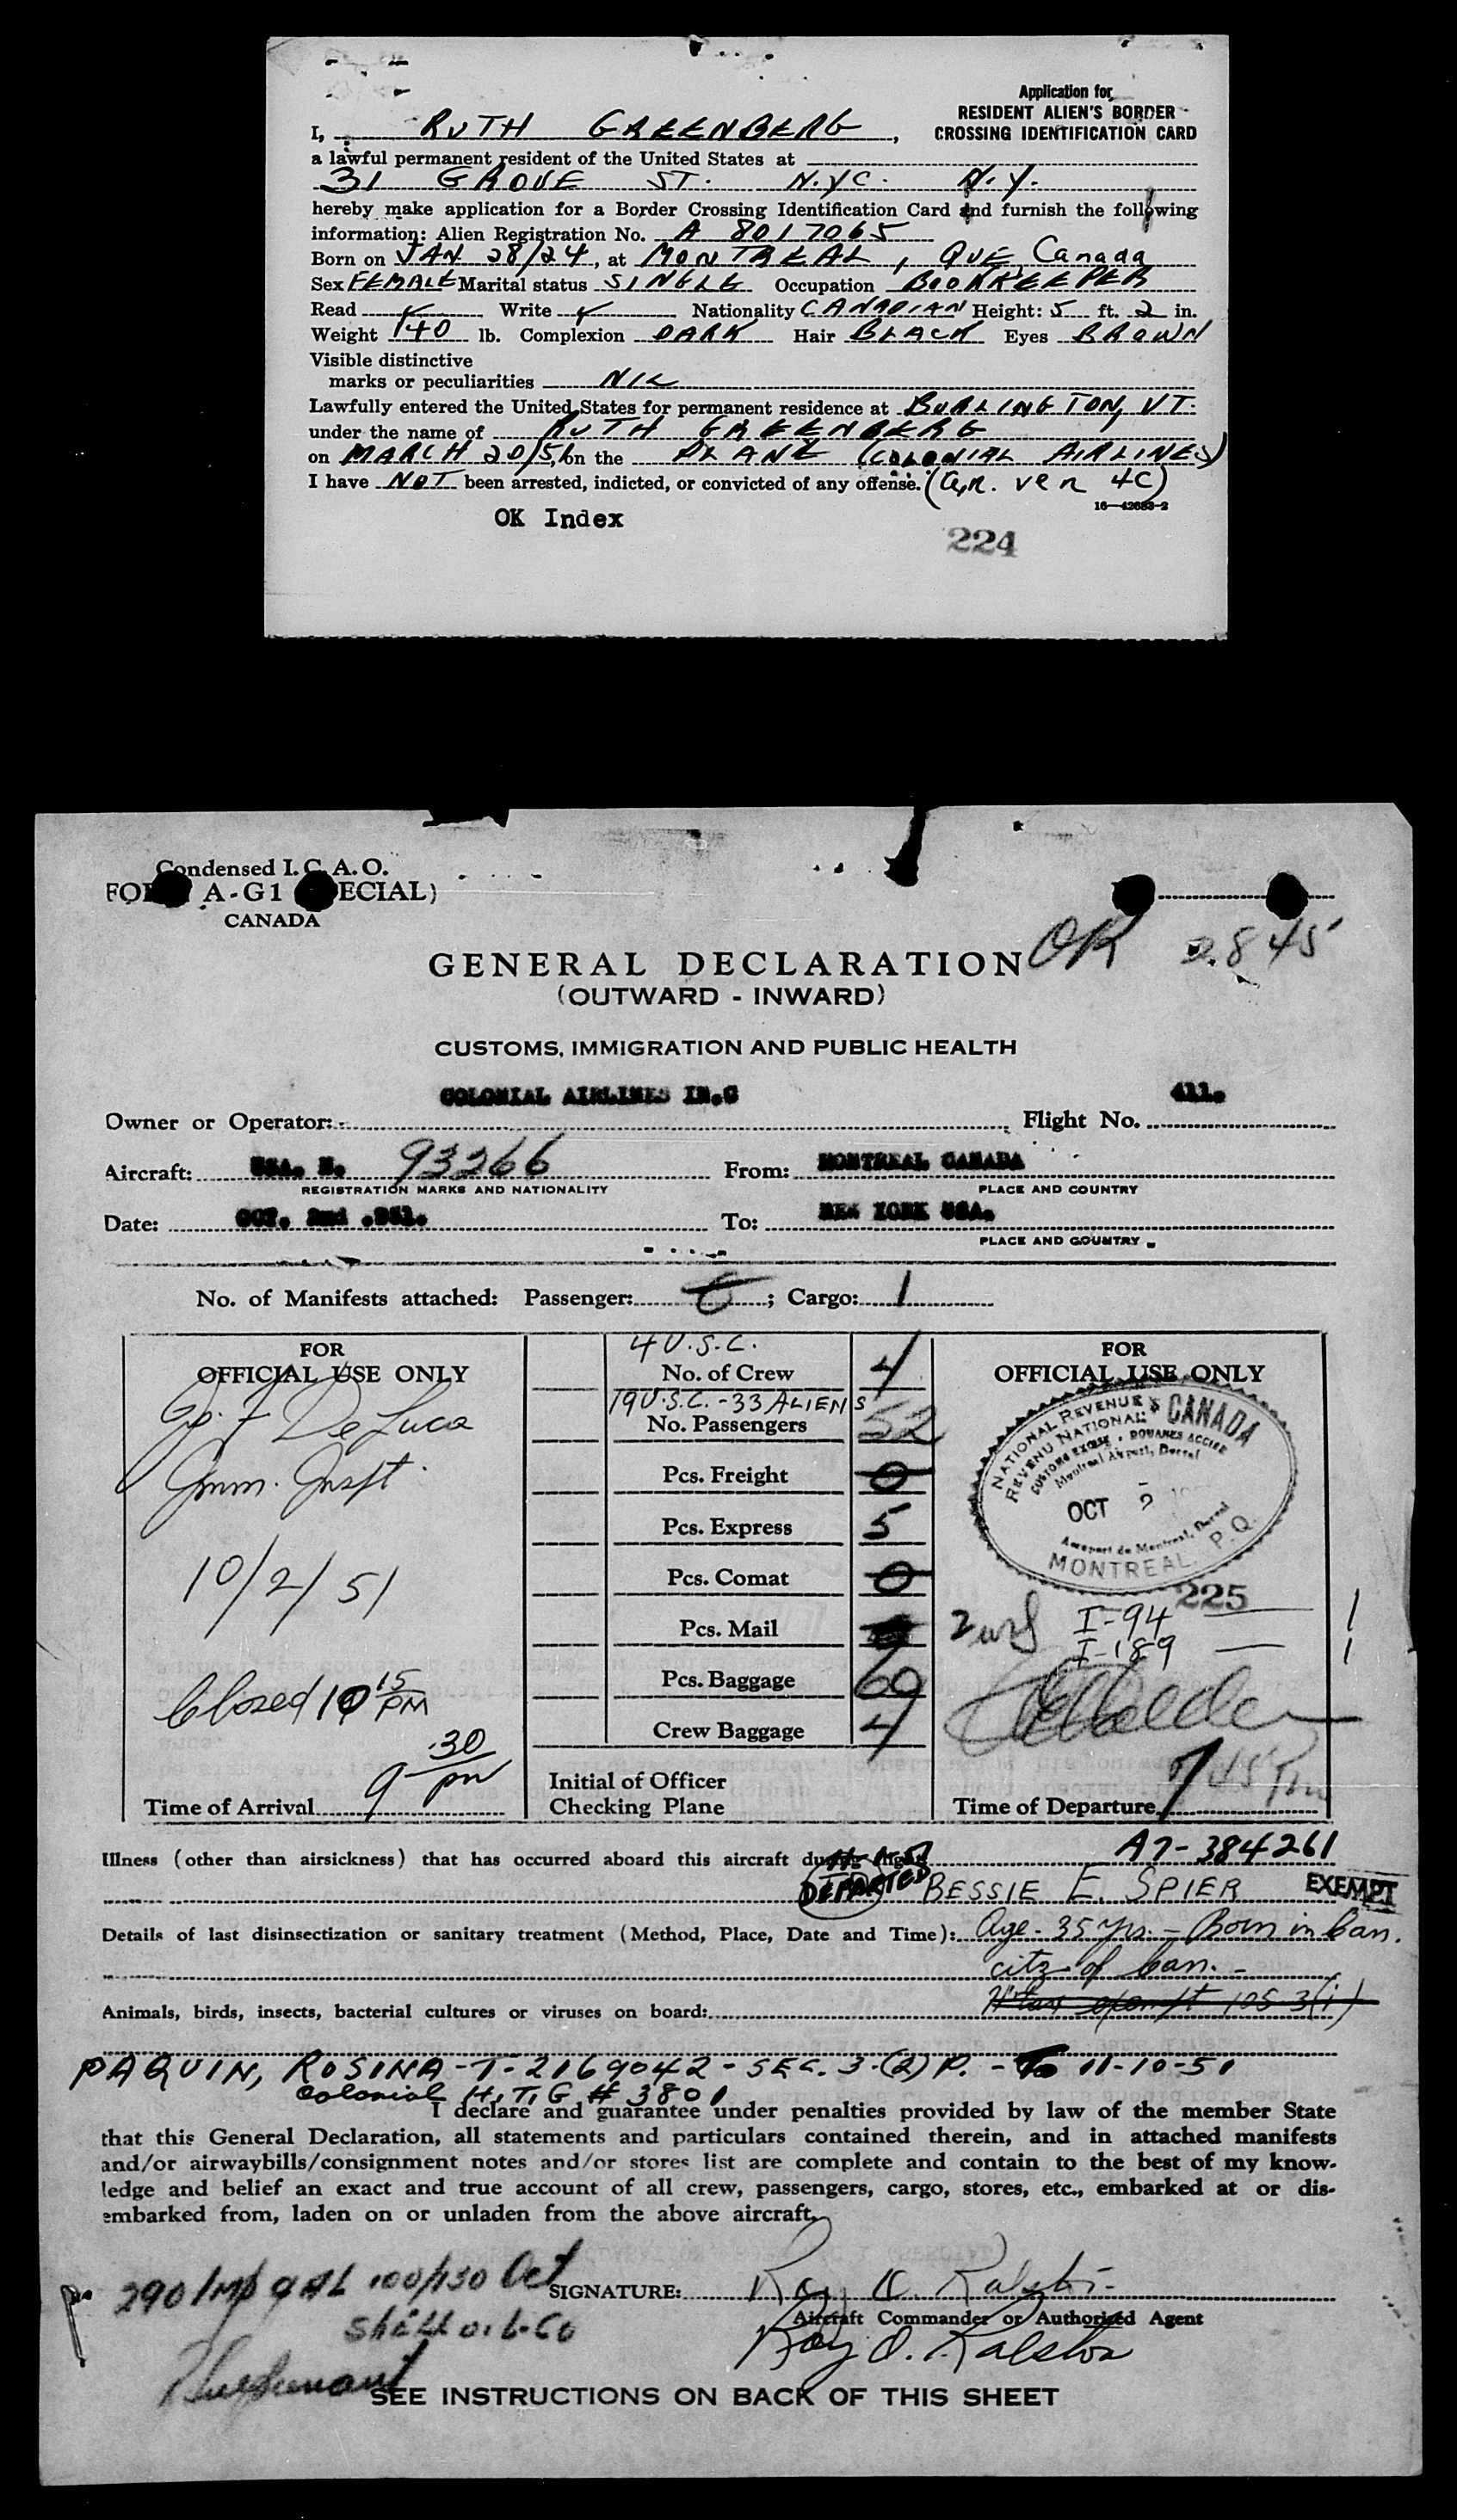 Application for
RESIDENT ALIEN'S BORDER
CROSSING IDENTIFICATION CARD
I, RUTH GREENBERG,
a lawful permanent resident of the United States at
31 GROVE ST. N.Y.C. N.Y.
hereby make application for a Border Crossing Identification Card and furnish the following
information: Alien Registration No. A 8017065
Born on JAN 28/24, at MONTREAL, QUE, Canada
Sex FEMALE Marital status SINGLE Occupation BOOKKEEPER
Read ✓ Write ✓ Nationality CANADIAN Height: 5 ft. 2 in.
Weight 140 lb. Complexion DARK Hair BLACK Eyes BROWN
Visible distinctive
marks or peculiarities NIL
Lawfully entered the United States for permanent residence at BURLINGTON, VT.
under the name of RUTH GREENBERG
on MARCH 20/51, on the PLANE (COLONIAL AIRLINES)
I have NOT been arrested, indicted, or convicted of any offense. 4C)
16—42683-2
OK Index
224
Condensed I.C.A.O.
A-G1 ECIAL)
CANADA
OK 2.845
GENERAL DECLARATION
(OUTWARD - INWARD)
CUSTOMS, IMMIGRATION AND PUBLIC HEALTH
Owner or Operator: COLONIAL AIRLINES IN.C Flight No. 411.
Aircraft: USA. N. 93266 From: MONTREAL CANADA
REGISTRATION MARKS AND NATIONALITY PLACE AND COUNTRY
Date: OCT. 2nd .951. To: NEW YORK USA.
PLACE AND COUNTRY
No. of Manifests attached: Passenger: 6; Cargo: 1
FOR
OFFICIAL USE ONLY
De Luca
Imm. Inspt.
10/2/51
Closed 10 15 PM
9 30 pm
Time of Arrival
4 U.S.C.
No. of Crew 4
19 U.S.C. - 33 ALIENS
No. Passengers 52
Pcs. Freight 0
Pcs. Express 5
Pcs. Comat 0
Pcs. Mail
Pcs. Baggage 60
Crew Baggage 4
Initial of Officer
Checking Plane
FOR
OFFICIAL USE ONLY
NATIONAL REVENUE CANADA
REVENU NATIONAL
CUSTOMS EXCISE • DOUANES ACCISE
Montreal Airport, Dorval
OCT 2
Aeroport de Montreal, Dorval
MONTREAL, P.Q.
225
I-94 — 1
I-189 — 1
Time of Departure 7 45 Pm
Illness (other than airsickness) that has occurred aboard this aircraft during flight A7-384261
DEPARTED BESSIE E. SPIER EXEMPT
Details of last disinsectization or sanitary treatment (Method, Place, Date and Time): Age - 35 yrs. - Born in Can.
citz of Can. -
Animals, birds, insects, bacterial cultures or viruses on board:
PAQUIN, ROSINA - T-2169042 - SEC. 3-(2) P. - To 11-10-51
Colonial H.T.G # 3801
I declare and guarantee under penalties provided by law of the member State
that this General Declaration, all statements and particulars contained therein, and in attached manifests
and/or airwaybills/consignment notes and/or stores list are complete and contain to the best of my know-
ledge and belief an exact and true account of all crew, passengers, cargo, stores, etc., embarked at or dis-
embarked from, laden on or unladen from the above aircraft.
290 Imp GAL 100/130 Oct
Shell Oil Co
SIGNATURE: Roy O. Ralston
Aircraft Commander or Authorized Agent
Roy O. Ralston
SEE INSTRUCTIONS ON BACK OF THIS SHEET